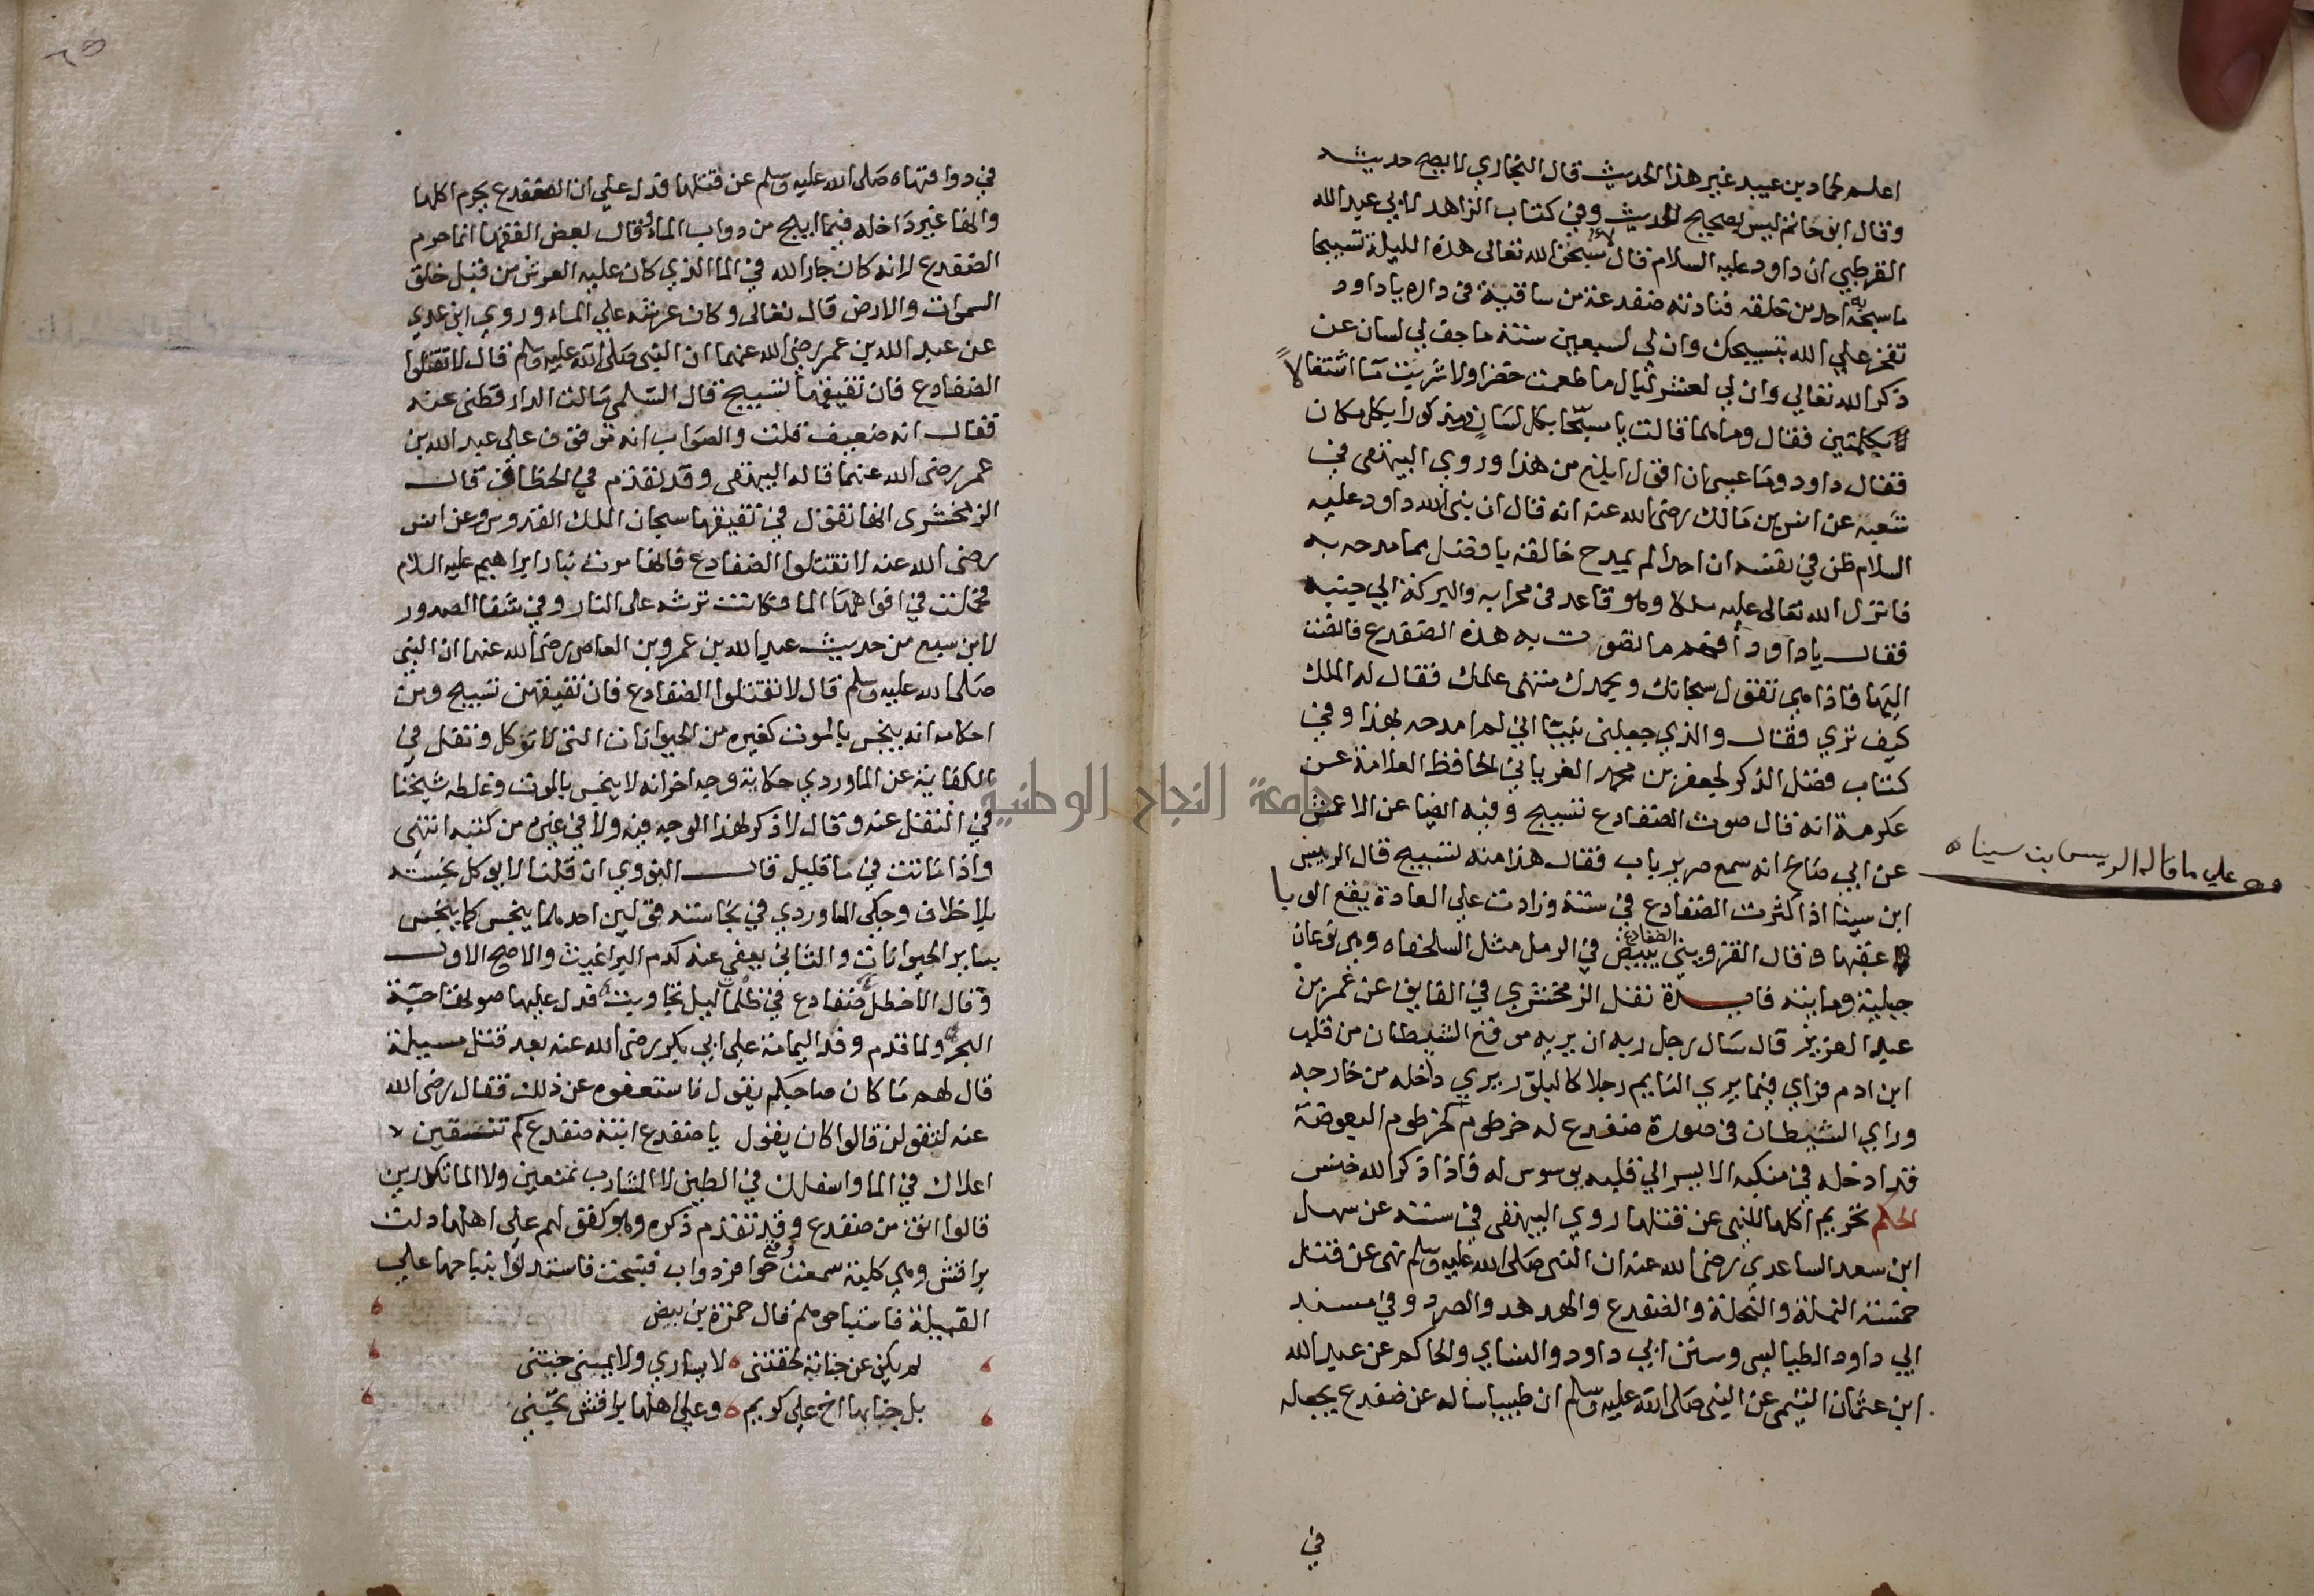 اعلم لحماد بن عبيد غير هذا الحديث قال البخاري لا يصح حديثه
وقال ابن حاتم ليس بصحيح الحديث وفي كتاب الزاهد لابي عبد الله
القرطبي ان داود عليه السلام قال لاسبحن الله تعالى هذه الليلة تسبيحا
ما سبحه به احد من خلقه فنادته ضفدعة من ساقية في داره يا داود
تفخر علي الله بتسبيحك وان لي لسبعين سنة ما جف لي لسان عن
ذكر الله تعالي وان لي لعشر ليال ما طعمت خضرا ولا شربت مآ اشتغالاً
بكلمتين فقال وما هما قالت يا مسبّحا بكل لسان ومذكورا بكل مكان
فقال داود وما عسى ان اقول ابلغ من هذا وروي البيهقي في
شعبه عن انس بن مالك رضى الله عنه انه قال ان نبى الله داود عليه
السلام ظن في نفسه ان احدا لم يمدح خالقه بافضل مما مدحه به
فانزل الله تعالى عليه ملكا وهو قاعد في محرابه والبركة الي جنبه
فقال يا داود افهم ما تصوت به هذه الضفدع فانصت
اليها فاذا هي تقول سبحانك وبحمدك منتهى علمك فقال له الملك
كيف ترى فقال والذي جعلني نبيّا اني لم امدحه بهذا وفي
كتاب فضل الذكر لجعفر بن محمد الفريابي الحافظ العلامة عن
عكرمة انه قال صوت الضفادع تسبيح وفيه ايضا عن الاعمش
عن ابي صالح انه سمع صرير باب فقال هذا منه تسبيح قال الرييس
علي ما قاله الرييس ابن سينا ه
ابن سينا اذا كثرت الضفادع في سنة وزادت علي العادة يقع الوبا
عقبها وقال القزويني الضفادع تبيض في الرمل مثل السلحفاه وهي نوعان
جبلية ومايية فايدة نقل الزمخشري في الفايق عن عمر بن
عبد العزيز قال سال رجل ربه ان يريه موقع الشيطان من قلب
ابن ادم فراي فيما يري النايم رجلا كالبلور يري داخله من خارجه
وراي الشيطان في صورة ضفدع له خرطوم كخرطوم البعوضة
قد ادخله في منكبه الايسر الي قلبه يوسوس له فاذا ذكر الله خنس
الحكم تحريم اكلها للنهى عن قتلها روي البيهقي في سننه عن سهل
ابن سعد الساعدي رضى الله عنه ان النبى صلى الله عليه وسلم نهى عن قتل
خمسة النملة والنحلة والضفدع والهدهد والصرد وفي مسند
ابي داود الطيالسي وسنن ابي داود والنساي والحاكم عن عبد الله
ابن عثمان التيمى عن النبى صلى الله عليه وسلم ان طبيبا ساله عن ضفدع يجعله
في
في دوا فنهاه صلى الله عليه وسلم عن قتلها فدل علي ان الضفدع يحرم اكلها
وانها غير داخله فيما ابيح من دواب الماء وقال بعض الفقها انما حرم
الضفدع لانه كان جار الله في الما الذي كان عليه العرش من قبل خلق
السموات والارض قال تعالى وكان عرشه علي الماء وروي ابن عدي
عن عبد الله بن عمر رضى الله عنهما ان النبى صلى الله عليه وسلم قال لا تقتلوا
الضفادع فان نقيقها تسبيح قال السلمي سالت الدارقطنى عنه
فقال انه ضعيف قلت والصواب انه موقوف علي عبد الله بن
عمر رضى الله عنهما قاله البيهقى وقد تقدم في الخطاف قال
الزمخشرى انها تقول في نقيقها سبحان الملك القدوس وعن انس
رضى الله عنه لا تقتلوا الضفادع فانها مرت بنار ابراهيم عليه السلام
فحملت في افواهها الما فكانت ترشه على النار وفي شفا الصدور
لابن سبع من حديث عبد الله بن عمرو بن العاص رضى الله عنهما ان النبى
صلى الله عليه وسلم قال لا تقتلوا الضفادع فان نقيقهن تسبيح ومن
احكامه انه ينجس بالموت كغيره من الحيوانات التى لا توكل ونقل في
الكفاية عن الماوردي حكاية وجه اخر انه لا ينجس بالموت وغلطه شيخنا
في النقل عنه وقال لا ذكر لهذا الوجه فيه ولا في غيره من كتبه انتهى
واذا ماتت في ما قليل قال النووي ان قلنا لا يوكل نجسته
بلا خلاف وحكي الماوردي في نجاسته قولين احدهما ينجس كما ينجس
بساير الحيوانات والثاني يعفى عنه كدم البراغيث والاصح الاول
وقال الاخطل ضفادع في ظلما ليل تجاوبت فدل عليها صوتها حية
البحر ولما قدم وفد اليمامة علي ابي بكر رضى الله عنه بعد قتل مسيلمة
قال لهم ما كان صاحبكم يقول فاستعفوه عن ذلك فقال رضى الله
عنه لتقولن قالوا كان يقول يا ضفدع ابنة ضفدع كم تنقنقين
اعلاك في الما واسفلك في الطين لا الشارب تمنعين ولا الما تكدرين
قالوا انق من ضفدع وقد تقدم ذكره وهو كقولهم علي اهلها دلت
براقش وهي كلبة سمعت وقع حوافر دواب فنبحت فاستدلوا بنباحها علي
القبيلة فاستباحوهم قال حمزة بن بيض
لم يكن عن جناية لحقتنى ه لا يسارى ولا يمينى جنتنى
بل جناها اخ علي كريم ه وعلي اهلها براقش تجني